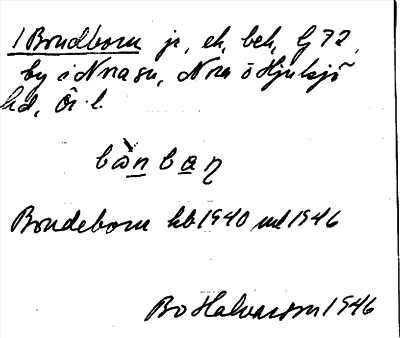 1 Bondborn jr, ek, bek, G 72,
by i N Nasu, N Ö Hjulsjö
hd, Ör l.
bὼn baɳ
Bondeborn kb 1940 ml 1946
Bo Halvarson 1946